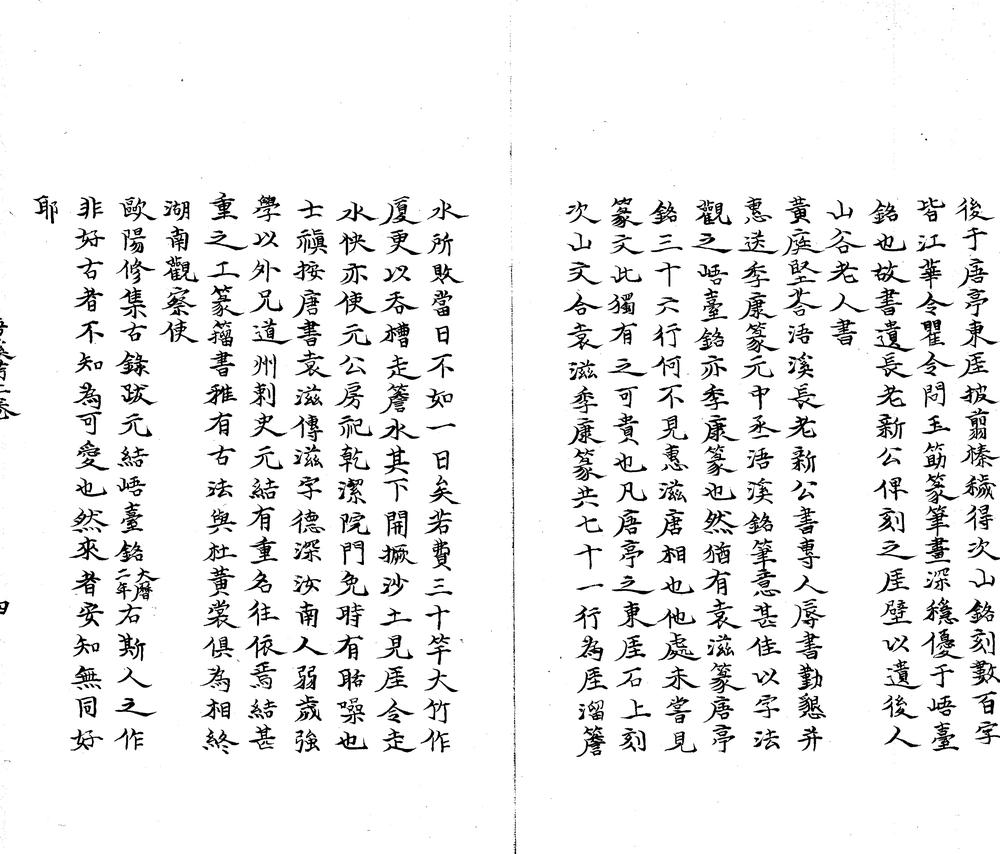 後于唐亭東厓披翦榛穢得次山銘刻數百字
皆江華令瞿令問玉筯篆筆畫深穩優于峿臺
銘也故書遺長老新公俾刻之厓壁以遺後人
山谷老人書
黃庭堅荅浯溪長老新公書專人辱書勤懇并
惠送季康篆元中丞浯溪銘筆意甚佳以字法
觀之峿臺銘亦季康篆也然猶有袁滋篆唐亭
銘三十六行何不見惠滋唐相也他處未嘗見
篆文此獨有之可貴也凡唐亭之東厓石上刻
次山文合袁滋季康篆共七十一行為厓溜簷
水所敗當日不如一日矣若費三十竿大竹作
厦更以吞槽走簷水其下開撅沙土見厓令走
水快亦使元公房祀乾潔院門免時有聒噪也
士禛按唐書袁滋傳滋字德深汝南人弱歲強
學以外兄道州刺史元結有重名往依焉結甚
重之工篆籀書雅有古法與杜黃裳俱為相終
湖南觀察使
歐陽修集古錄跋元結峿臺銘大曆二年右斯人之作
非好古者不知為可愛也然來者安知無同好
耶
四